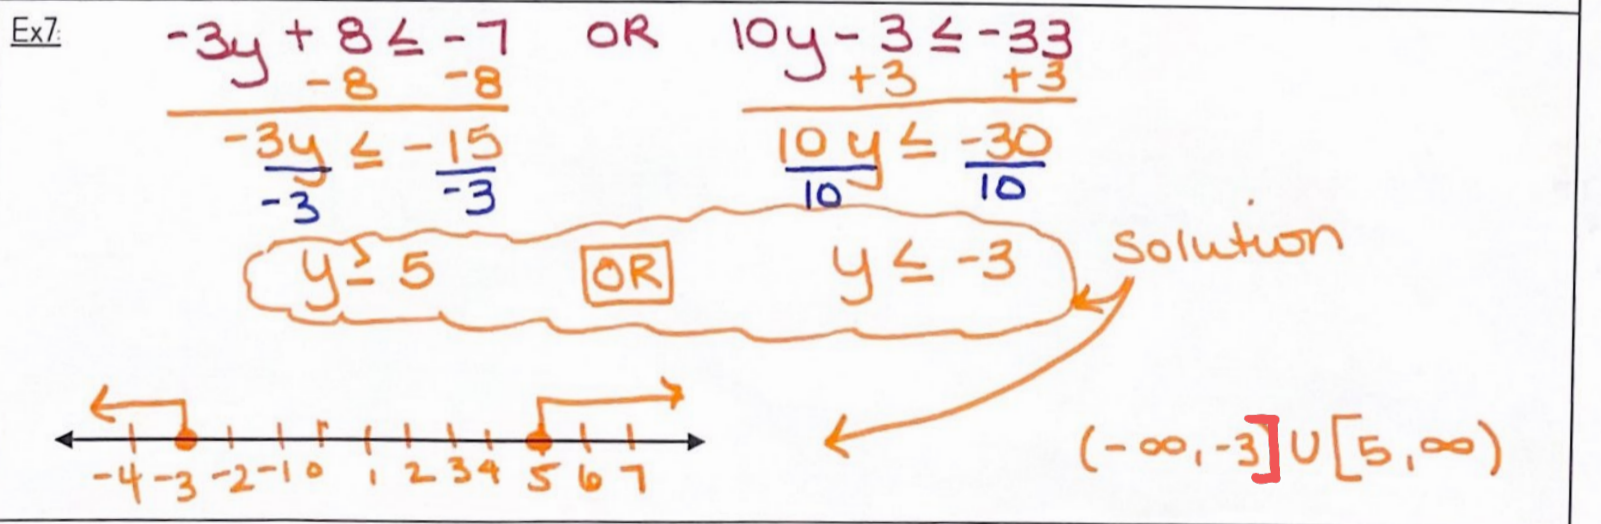 Ex7:
-3y + 8 ≤ -7 OR 10y - 3 ≤ -33
-8 -8 +3 +3
-3y ≤ -15 10y ≤ -30
-3 -3 10 10
y ≥ 5 OR y ≤ -3
Solution
-4 -3 -2 -1 0 1 2 3 4 5 6 7
(-∞, -3] ∪ [5, ∞)